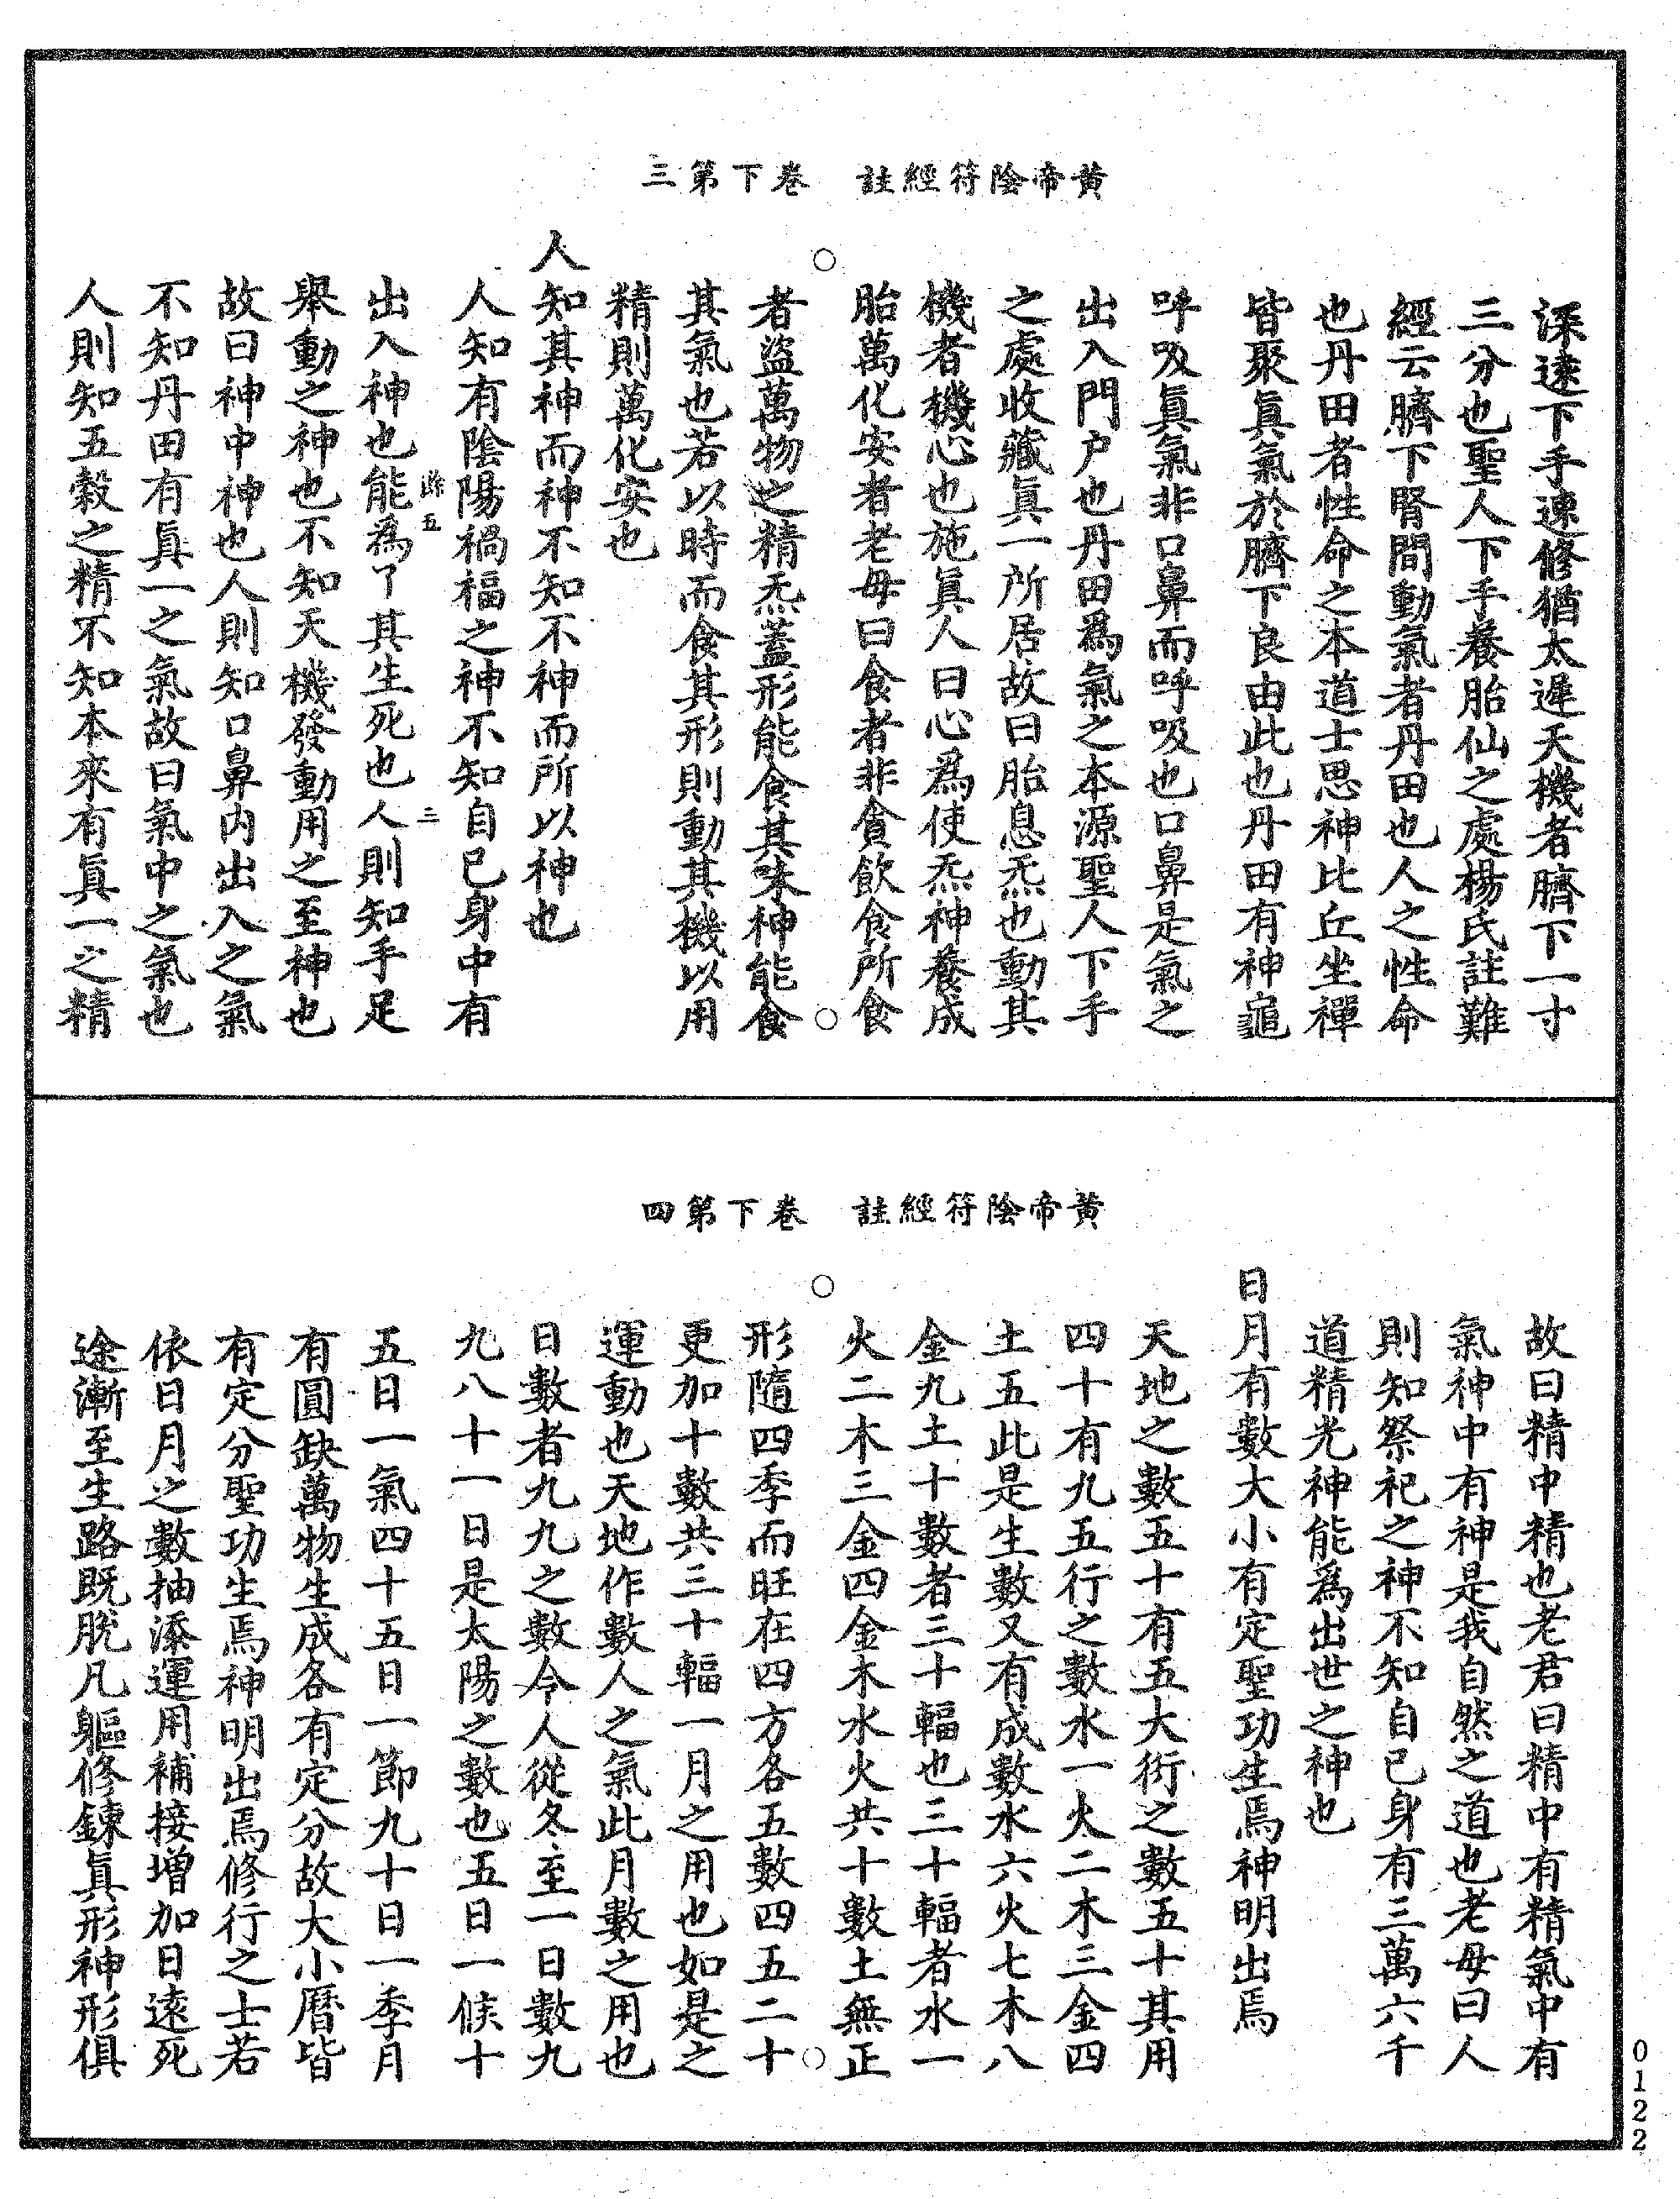 黃帝陰符經註　卷下第三
深遠下手速修猶太遲天機者臍下一寸
三分也聖人下手養胎仙之處楊氏註難
經云臍下腎間動氣者丹田也人之性命
也丹田者性命之本道士思神比丘坐禪
皆聚眞氣於臍下良由此也丹田有神龜
呼吸眞氣非口鼻而呼吸也口鼻是氣之
出入門户也丹田爲氣之本源聖人下手
之處收藏眞一所居故曰胎息炁也動其
機者機心也施眞人曰心爲使炁神養成
胎萬化安者老母曰食者非貪飲食所食
者盜萬物之精炁蓋形能食其味神能食
其氣也若以時而食其形則動其機以用
精則萬化安也
人知其神而神不知不神而所以神也
人知有陰陽禍福之神不知自已身中有
餘五　三
出入神也能爲了其生死也人則知手足
舉動之神也不知天機發動用之至神也
故曰神中神也人則知口鼻内出入之氣
不知丹田有眞一之氣故曰氣中之氣也
人則知五穀之精不知本來有眞一之精
黃帝陰符經註　卷下第四
故曰精中精也老君曰精中有精氣中有
氣神中有神是我自然之道也老母曰人
則知祭祀之神不知自已身有三萬六千
道精光神能爲出世之神也
日月有數大小有定聖功生焉神明出焉
天地之數五十有五大衍之數五十其用
四十有九五行之數水一火二木三金四
土五此是生數又有成數水六火七木八
金九土十數者三十輻也三十輻者水一
火二木三金四金木水火共十數土無正
形隨四季而旺在四方各五數四五二十
更加十數共三十輻一月之用也如是之
運動也天地作數人之氣此月數之用也
日數者九九之數今人從冬至一日數九
九八十一日是太陽之數也五日一候十
五日一氣四十五日一節九十日一季月
有圓缺萬物生成各有定分故大小曆皆
有定分聖功生焉神明出焉修行之士若
依日月之數抽添運用補接增加日遠死
途漸至生路既脫凡軀修鍊眞形神形俱
0122